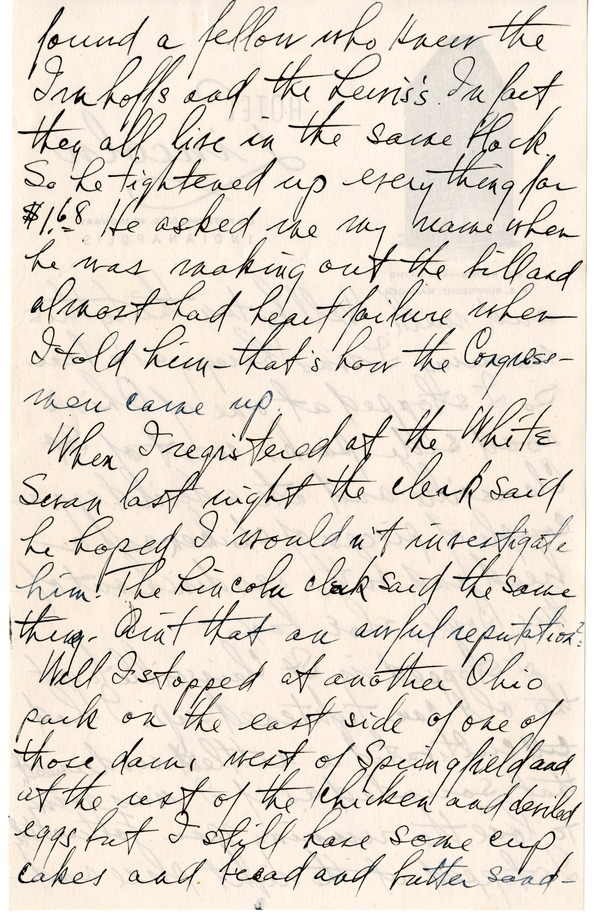 found a fellow who knew the
Imhoffs and the Lewis's. In fact
they all live in the same block.
So he tightened up everything for
$1.68 He asked me my name when
he was making out the bill and
almost had heart failure when
I told him - that's how the Congress-
men came up.
When I registered at the White
Swan last night the clerk said
he hoped I wouldn't investigate
him. The Lincoln clerk said the same
thing. Aint that an awful reputation?
Well I stopped at another Ohio
park on the east side of one of
those dams west of Springfield and
at the rest of the chicken and deviled
eggs, but I still have some cup
cakes and bread and butter sand-
HOTEL
Lincoln
INDIANAPOLIS